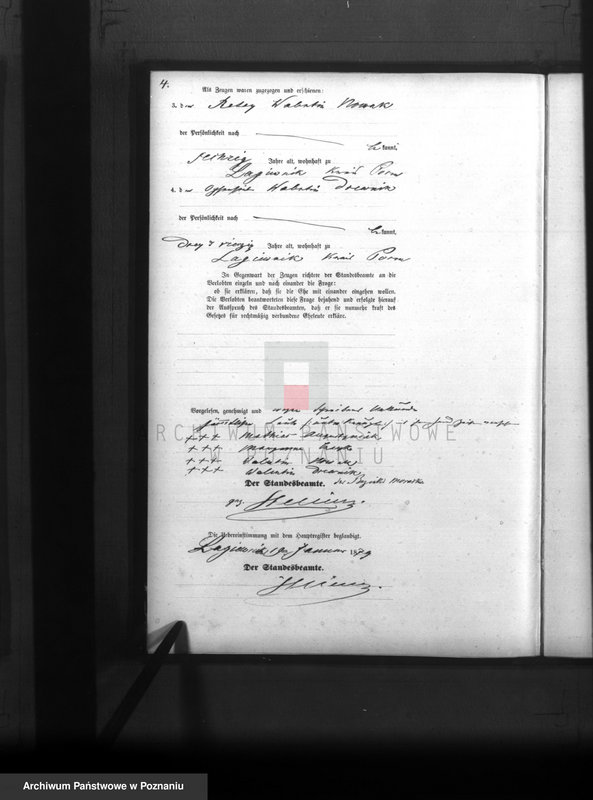 4.
Als Zeugen waren zugezogen und erschienen:
3. der Valentin Nowak
der Persönlichkeit nach
bekannt,
sechzig Jahre alt, wohnhaft zu
Lagiewnik Kreis Posen
4. der Valentin Drewniak
der Persönlichkeit nach
bekannt,
drey & vierzig Jahre alt, wohnhaft zu
Lagiewnik Kreis Posen
In Gegenwart der Zeugen richtete der Standesbeamte an die
Verlobten einzeln und nach einander die Frage:
ob sie erklären, daß sie die Ehe mit einander eingehen wollen.
Die Verlobten beantworteten diese Frage bejahend und erfolgte hierauf
der Ausspruch des Standesbeamten, daß er sie nunmehr kraft des
Gesetzes für rechtmäßig verbundene Eheleute erkläre.
Vorgelesen, genehmigt und wegen Schreibens
+++
+++ Marganna
+++ Valentin Nowak
+++ Valentin Drewniak
Der Standesbeamte. des Bezirks Morasko
gez.
Die Uebereinstimmung mit dem Hauptregister beglaubigt.
Lagiewnik, Januar 1879
Der Standesbeamte.
ARCHIWUM PAŃSTWOWE
W POZNANIU
Archiwum Państwowe w Poznaniu